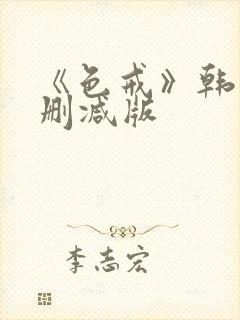 《色戒》韩
删减版
李志宏